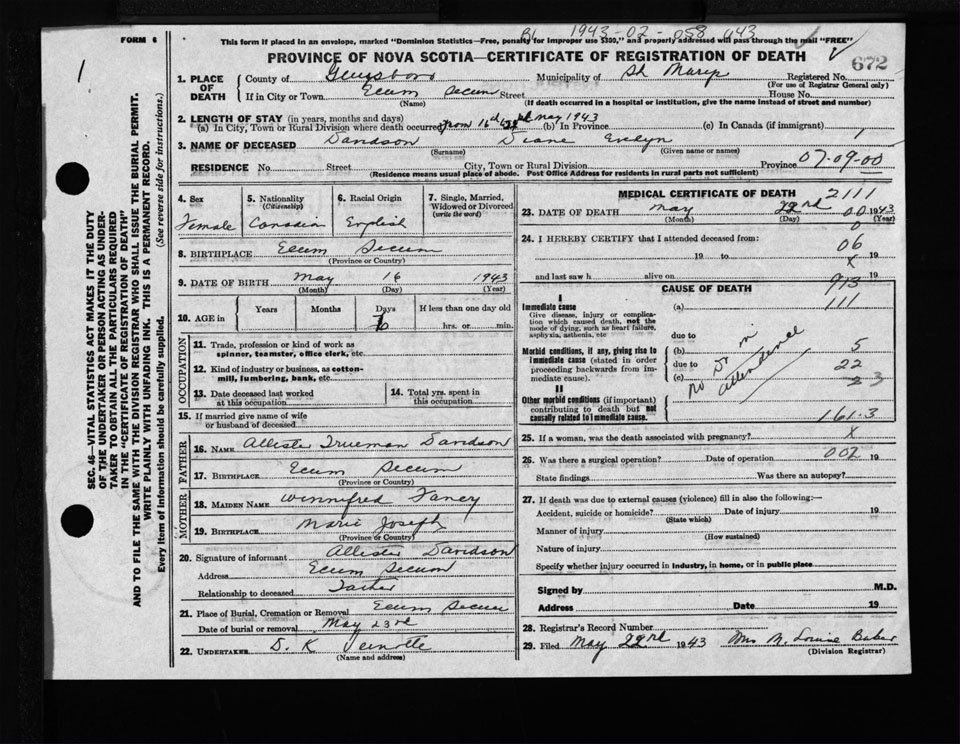 FORM 6
This form if placed in an envelope, marked "Dominion Statistics—Free, penalty for improper use $300," and properly addressed will pass through the mail "FREE"
1943-02-058 643
PROVINCE OF NOVA SCOTIA—CERTIFICATE OF REGISTRATION OF DEATH
672
1
SEC. 46—VITAL STATISTICS ACT MAKES IT THE DUTY
OF THE UNDERTAKER OR PERSON ACTING AS UNDER-
TAKER TO OBTAIN ALL THE PARTICULARS REQUIRED
IN THE "CERTIFICATE OF REGISTRATION OF DEATH"
AND TO FILE THE SAME WITH THE DIVISION REGISTRAR WHO SHALL ISSUE THE BURIAL PERMIT.
WRITE PLAINLY WITH UNFADING INK. THIS IS A PERMANENT RECORD.
Every item of information should be carefully supplied. (See reverse side for instructions.)
1. PLACE OF DEATH County of Guysboro Municipality of St Marys Registered No.
(For use of Registrar General only)
If in City or Town Ecum Secum Street House No.
(Name) (If death occurred in a hospital or institution, give the name instead of street and number)
2. LENGTH OF STAY (in years, months and days)
(a) In City, Town or Rural Division where death occurred from 16th May 1943 (b) In Province (c) In Canada (if immigrant)
3. NAME OF DECEASED Davidson Diane Evelyn
(Surname) (Given name or names)
RESIDENCE No. Street City, Town or Rural Division Province 07-09-00
(Residence means usual place of abode. Post Office Address for residents in rural parts not sufficient)
4. Sex
Female
5. Nationality
(Citizenship)
Canadian
6. Racial Origin
English
7. Single, Married, Widowed or Divorced
(write the word)
8. BIRTHPLACE Ecum Secum
(Province or Country)
9. DATE OF BIRTH May 16 1943
(Month) (Day) (Year)
10. AGE in Years Months Days If less than one day old
hrs. or min.
OCCUPATION
11. Trade, profession or kind of work as
spinner, teamster, office clerk, etc.
12. Kind of industry or business, as cotton-
mill, lumbering, bank, etc.
13. Date deceased last worked
at this occupation
14. Total yrs. spent in
this occupation
15. If married give name of wife
or husband of deceased
FATHER
16. NAME Allister Trueman Davidson
17. BIRTHPLACE Ecum Secum
(Province or Country)
MOTHER
18. MAIDEN NAME Winnifred Fancy
19. BIRTHPLACE Marie Joseph
(Province or Country)
20. Signature of informant Allister Davidson
Address Ecum Secum
Relationship to deceased Father
21. Place of Burial, Cremation or Removal Ecum Secum
Date of burial or removal May 23rd
22. UNDERTAKER D. K
(Name and address)
MEDICAL CERTIFICATE OF DEATH
2111
23. DATE OF DEATH May 22rd 1943
(Month) (Day) (Year)
00
0
24. I HEREBY CERTIFY that I attended deceased from:
06
19 to 19
X
and last saw h alive on 19
913
CAUSE OF DEATH
I
Immediate cause
Give disease, injury or complica-
tion which caused death, not the
mode of dying, such as heart failure,
asphyxia, asthenia, etc
(a) 111
due to
Morbid conditions, if any, giving rise to
immediate cause (stated in order
proceeding backwards from im-
mediate cause).
(b) 5
due to 22
(c) 23
no Dr in attendance
II
Other morbid conditions (if important)
contributing to death but not
causally related to immediate cause.
161.3
25. If a woman, was the death associated with pregnancy? X
26. Was there a surgical operation? Date of operation 002 19
State findings Was there an autopsy?
27. If death was due to external causes (violence) fill in also the following:—
Accident, suicide or homicide? Date of injury 19
(State which)
Manner of injury
(How sustained)
Nature of injury
Specify whether injury occurred in industry, in home, or in public place
Signed by M.D.
Address Date 19
28. Registrar's Record Number
29. Filed May 22rd 1943 Mrs M. Louise Baker
(Division Registrar)